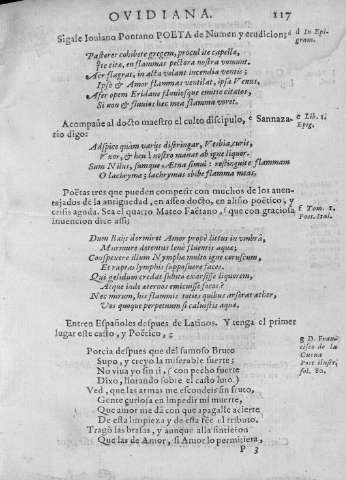 OVIDIANA. 117
Sigale Iouiano Pontano POETA de Numen y erudicion: d
d In Epi-
gram.
Pastores cohibete gregem, procul ite capellæ,
Ite citæ, en flammas pectora nostra vomunt.
Aer flagrat, in alta volant incendia ventis;
Ipse & Amor flammas ventilat, ipsa Venus,
Afer opem Eridane fluuiosque emitte citatos,
Si non & fluuios hec mea flamma voret.
Acompañe al docto maestro el culto discipulo, e Sannaza-
rio digo:
e Lib. 1.
Epig.
Adspice quàm varijs distringar, Vesbia, curis,
Vror, & heu! nostro manat ab igne liquor.
Sum Nilus, sumque Ætna simul: restinguite flammam
O lachrymæ; lachrymas ebibe flamma meas,
Poëtas tres que pueden competir con muchos de los auen-
tajados de la antiguedad, en asseo docto, en aliño poëtico, y
crisis aguda. Sea el quarto Mateo Faëtano, f que con graciosa
inuencion dize assi;
f Tom. 1.
Poet. Ital.
Dum Baijs dormiret Amor propè littus in vmbrâ,
Murmure detentus lenè fluentis aquæ;
Conspexere illum Nymphæ multo igne coruscum,
Et raptas lymphis supposuere faces.
Quis gelidum credat subitò exarsisse liquorem,
Atque inde æternos emicuisse focos?
Nec mirum, his flammis toties quibus arserat æther,
Vos quoque perpetuum si caluistis aquæ.
Entren Españoles despues de Latinos. Y tenga el primer
lugar este casto, y Poëtico, g
g D. Fran-
cisco de la
Cueua
Poet. ilustr.
fol. 80.
Porcia despues que del famoso Bruto
Supo, y creyo la miserable suerte;
No viua yo sin ti, (con pecho fuerte
Dixo, llorando sobre el casto luto.)
Ved, que las armas me esconde sin fruto,
Gente curiosa en impedir mi muerte,
Que amor me dá con que apagalle acierte
De esta limpieza y de esta fée el tributo.
Tragò las brasas, y aunque alla sintieron
Que las de Amor, si Amor lo permitiera,
P 3